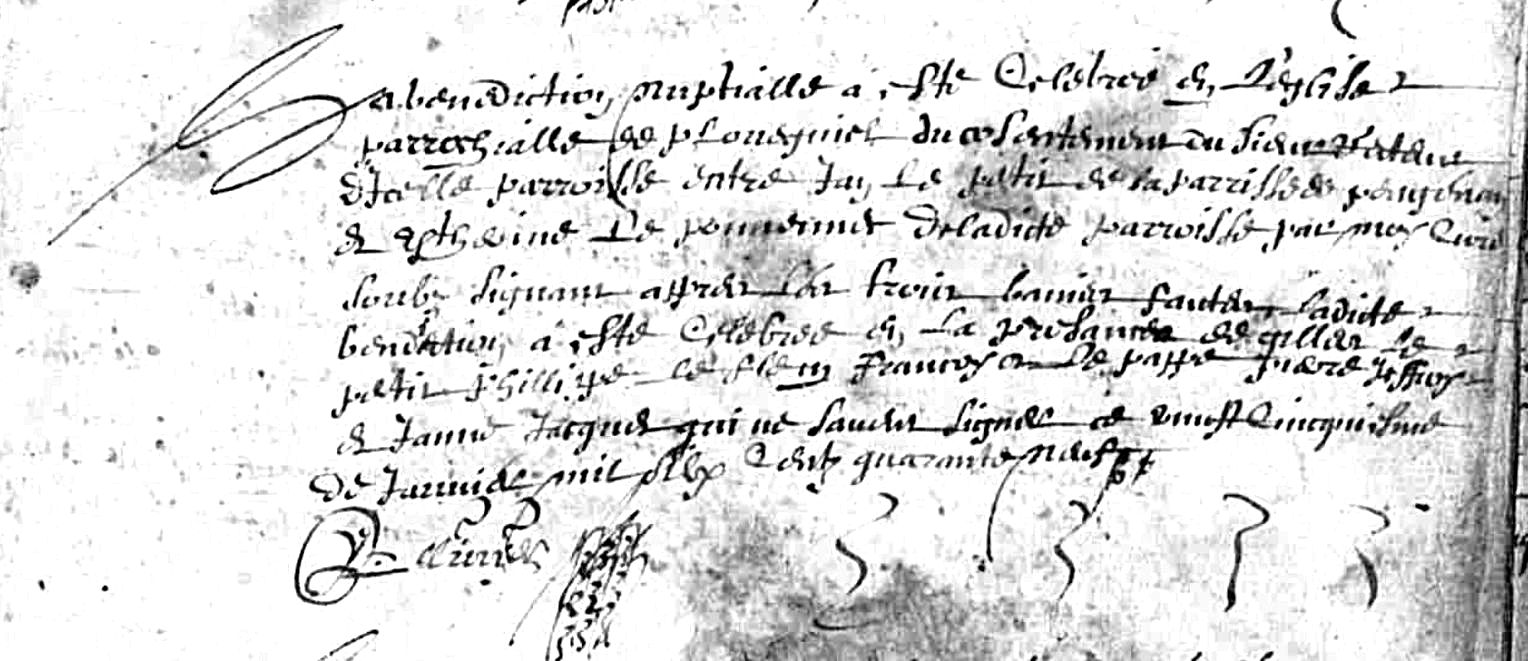 La benediction nuptialle a este Celebree en L'eglise
parrochialle de plouequiel du cosentement du sieur Recteur
d'Icelle parroisse entre Jan Le petit de la parrisse de
et Le de ladicte parroisse par moy Curé
soubz signant apprez les trois bannies faictes ladicte
benediction a este Celebree en La presance de gilles le
petit phillipe le francoys Le pappe pierre Joffroy
et Janne Jacques qui ne savent signer ce vinst Cincquiesme
de Janvier mil six Centz quarante neuff